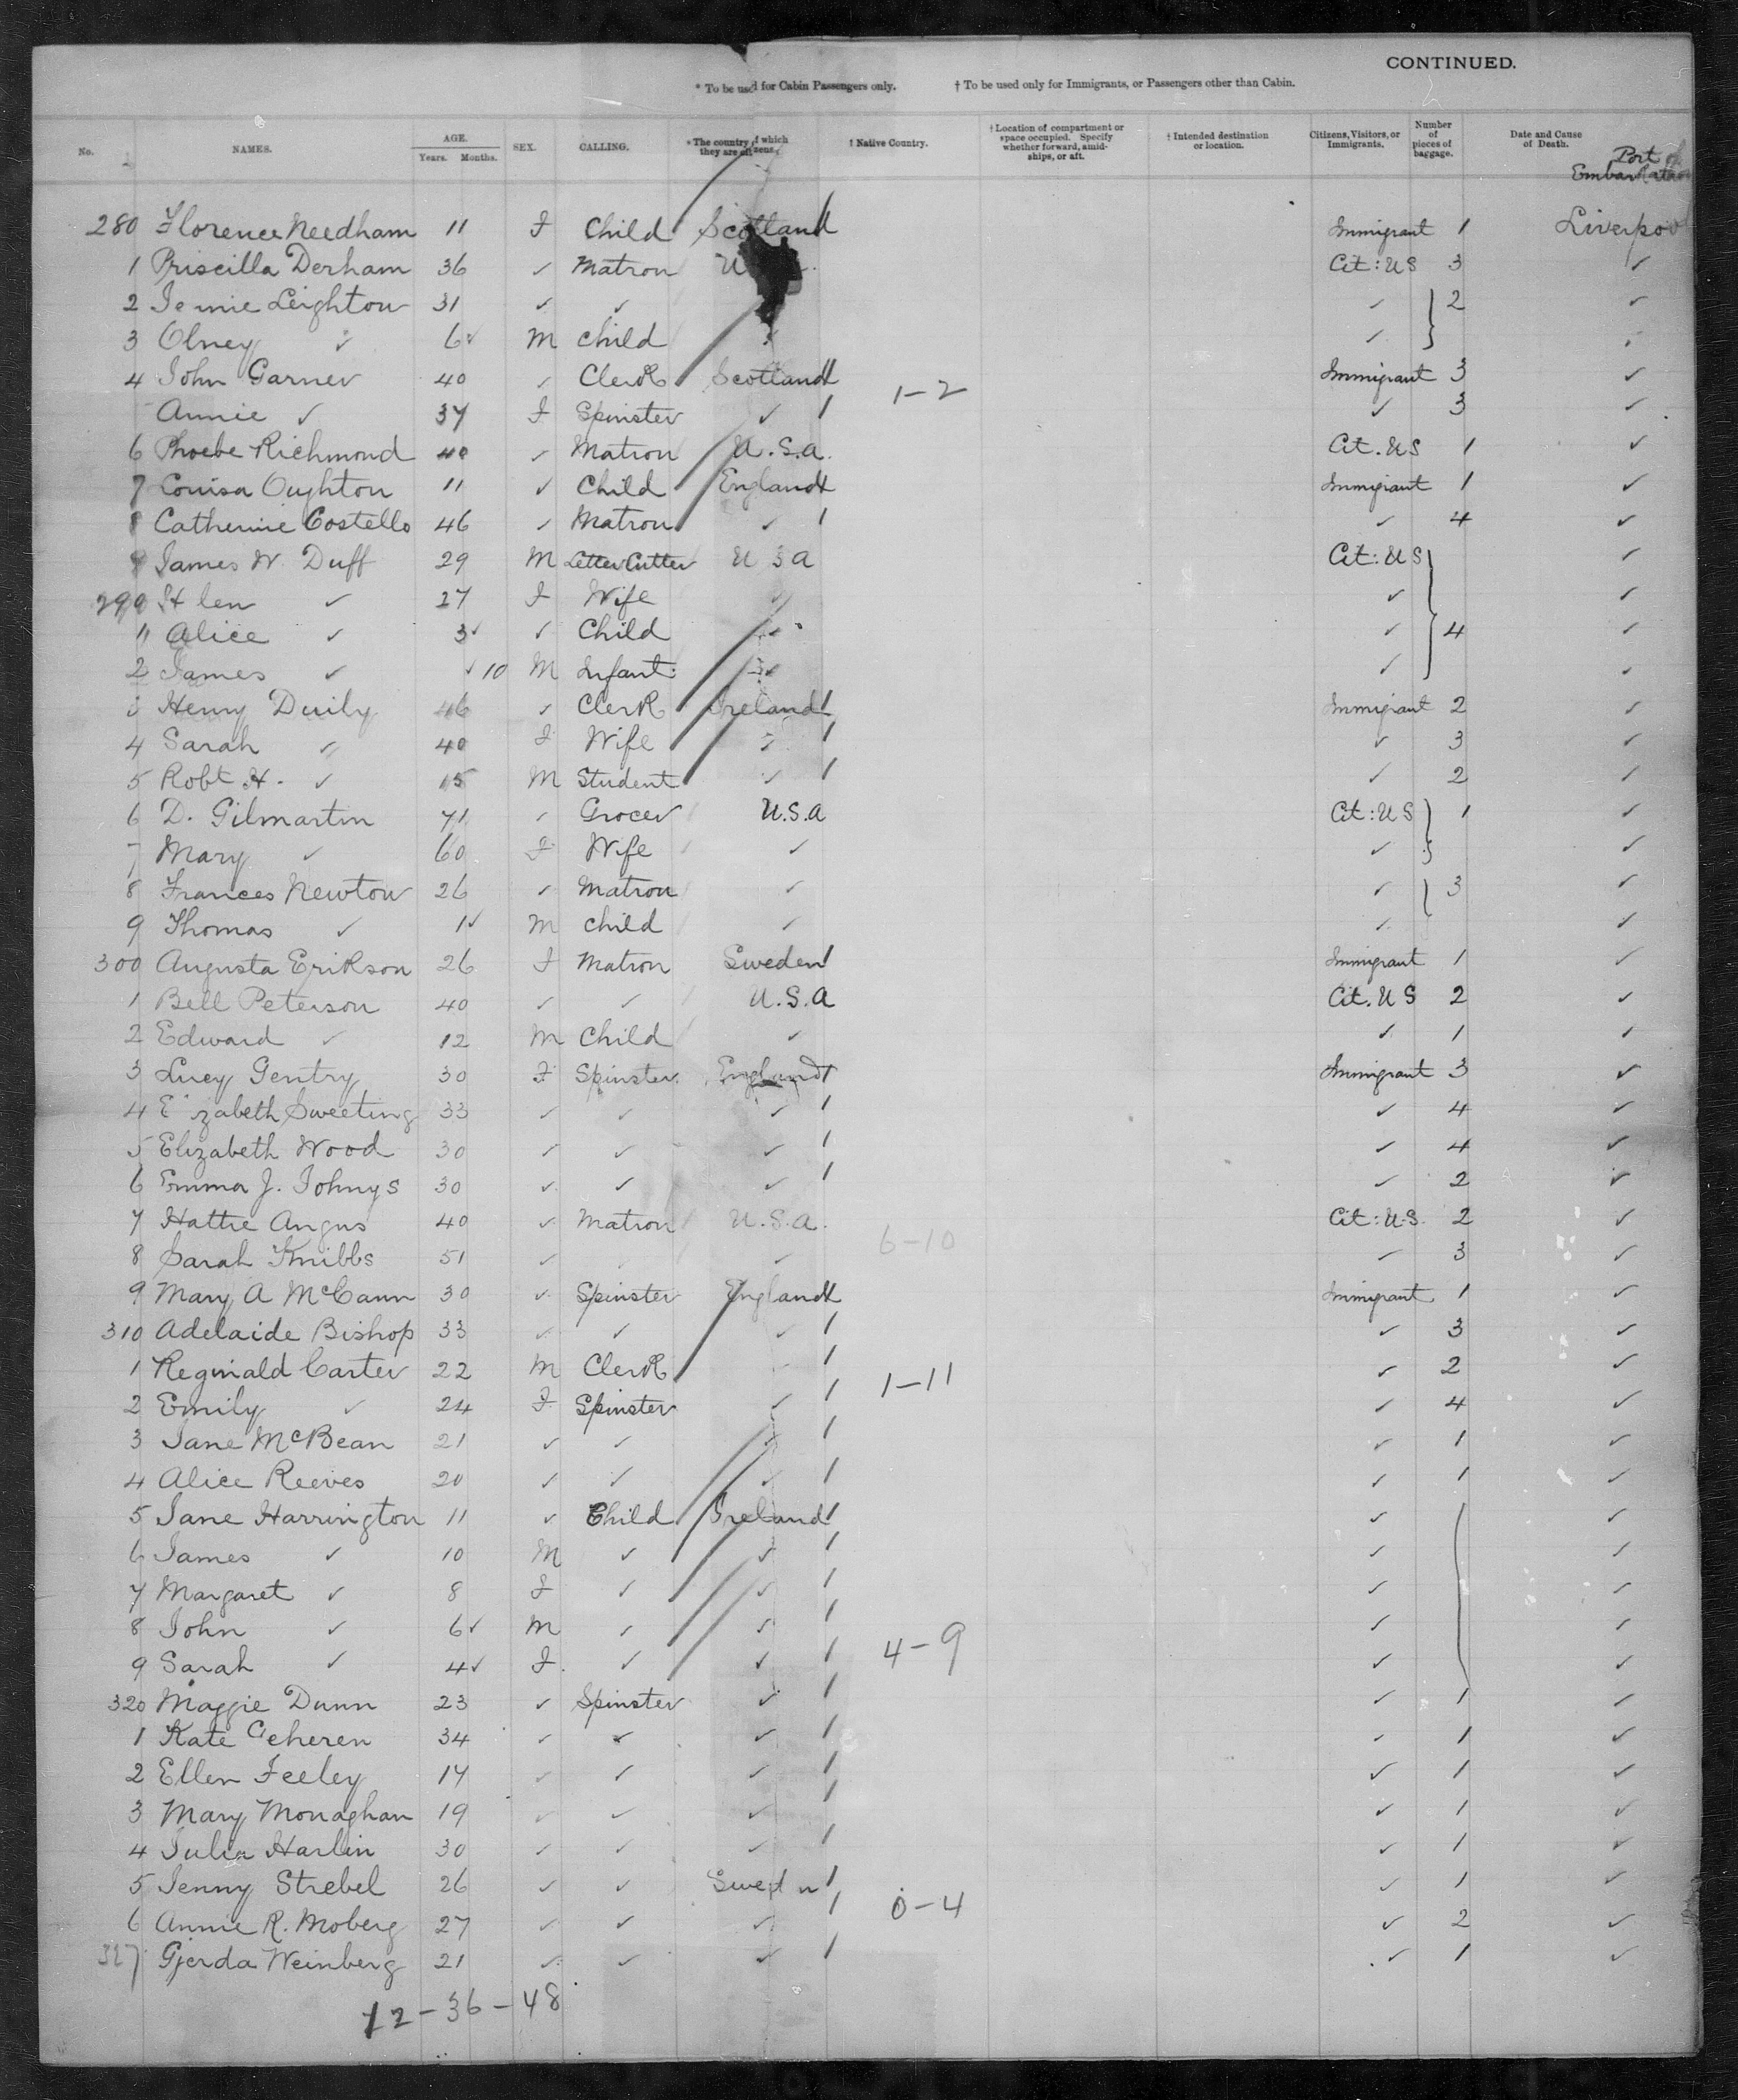 CONTINUED.
* To be used for Cabin Passengers only. † To be used only for Immigrants, or Passengers other than Cabin.
No. NAMES. AGE. Years. Months. SEX. CALLING. * The country of which they are citizens. † Native Country. † Location of compartment or space occupied. Specify whether forward, amidships, or aft. † Intended destination or location. Citizens, Visitors, or Immigrants. Number of pieces of baggage. Date and Cause of Death. Port of Embarkation
280 Florence Needham 11 F Child Scotland 1 Immigrant 1 Liverpool
1 Priscilla Derham 36 ✓ Matron U Cit: US 3 ✓
2 Jennie Leighton 31 ✓ ✓ ✓ 2 ✓
3 Olney ✓ 6 ✓ M Child ✓ ✓
4 John Garner 40 ✓ Clerk Scotland 1 1-2 Immigrant 3 ✓
Annie ✓ 37 F Spinster ✓ 1 ✓ 3 ✓
6 Phoebe Richmond 40 ✓ Matron U.S.A. Cit. US 1 ✓
7 Louisa Oughton 11 ✓ Child England 1 Immigrant 1 ✓
8 Catherine Costello 46 ✓ Matron ✓ 1 ✓ 4 ✓
9 James W. Duff 29 M Letter Cutter U S A Cit: US ✓
290 H len ✓ 27 F Wife ✓ ✓ ✓
11 Alice ✓ 3 ✓ ✓ Child ✓ ✓ 4 ✓
2 James ✓ ✓ 10 M Infant ✓ ✓ ✓
3 Henry Duily 46 ✓ Clerk Ireland 1 Immigrant 2 ✓
4 Sarah ✓ 40 F Wife ✓ 1 ✓ 3 ✓
5 Robt H. ✓ 15 M Student ✓ 1 ✓ 2 ✓
6 D. Gilmartin 71 ✓ Grocer U.S.A Cit: US 1 ✓
7 Mary ✓ 60 F Wife ✓ ✓ ✓
8 Frances Newton 26 ✓ Matron ✓ ✓ 3 ✓
9 Thomas ✓ 1 ✓ M Child ✓ ✓ ✓
300 Augusta Erikson 26 F Matron Sweden 1 Immigrant 1 ✓
1 Bell Peterson 40 ✓ ✓ U.S.A Cit. US 2 ✓
2 Edward ✓ 12 M Child ✓ ✓ 1 ✓
3 Lucy Gentry 30 F Spinster England 1 Immigrant 3 ✓
4 E izabeth Sweeting 33 ✓ ✓ ✓ 1 ✓ 4 ✓
5 Elizabeth Wood 30 ✓ ✓ ✓ 1 ✓ 4 ✓
6 Emma J. Johnys 30 ✓ ✓ ✓ 1 ✓ 2 ✓
7 Hattie Angus 40 ✓ Matron U.S.A. 6-10 Cit: U.S. 2 ✓
8 Sarah Knibbs 51 ✓ ✓ ✓ ✓ 3 ✓
9 Mary A McCann 30 ✓ Spinster England 1 Immigrant 1 ✓
310 Adelaide Bishop 33 ✓ ✓ ✓ 1 ✓ 3 ✓
1 Reginald Carter 22 M Clerk ✓ 1 1-11 ✓ 2 ✓
2 Emily ✓ 24 F Spinster ✓ 1 ✓ 4 ✓
3 Jane McBean 21 ✓ ✓ ✓ 1 ✓ 1 ✓
4 Alice Reeves 20 ✓ ✓ ✓ 1 ✓ 1 ✓
5 Jane Harrington 11 ✓ Child Ireland 1 ✓ ✓
6 James ✓ 10 M ✓ ✓ 1 ✓ ✓
7 Margaret ✓ 8 F ✓ ✓ 1 ✓ ✓
8 John ✓ 6 ✓ M ✓ ✓ 1 ✓ ✓
9 Sarah ✓ 4 ✓ F ✓ ✓ 1 4-9 ✓ ✓
320 Maggie Dunn 23 ✓ Spinster ✓ 1 ✓ 1 ✓
1 Kate Geheren 34 ✓ ✓ ✓ 1 ✓ 1 ✓
2 Ellen Feeley 17 ✓ ✓ ✓ 1 ✓ 1 ✓
3 Mary Monaghan 19 ✓ ✓ ✓ 1 ✓ 1 ✓
4 Julia Harlin 30 ✓ ✓ ✓ 1 ✓ 1 ✓
5 Jenny Strebel 26 ✓ ✓ Swed n 1 ✓ 1 ✓
6 Annie R. Moberg 27 ✓ ✓ ✓ 1 0-4 ✓ 2 ✓
327 Gjerda Weinberg 21 ✓ ✓ ✓ 1 ✓ 1 ✓
12-36-48